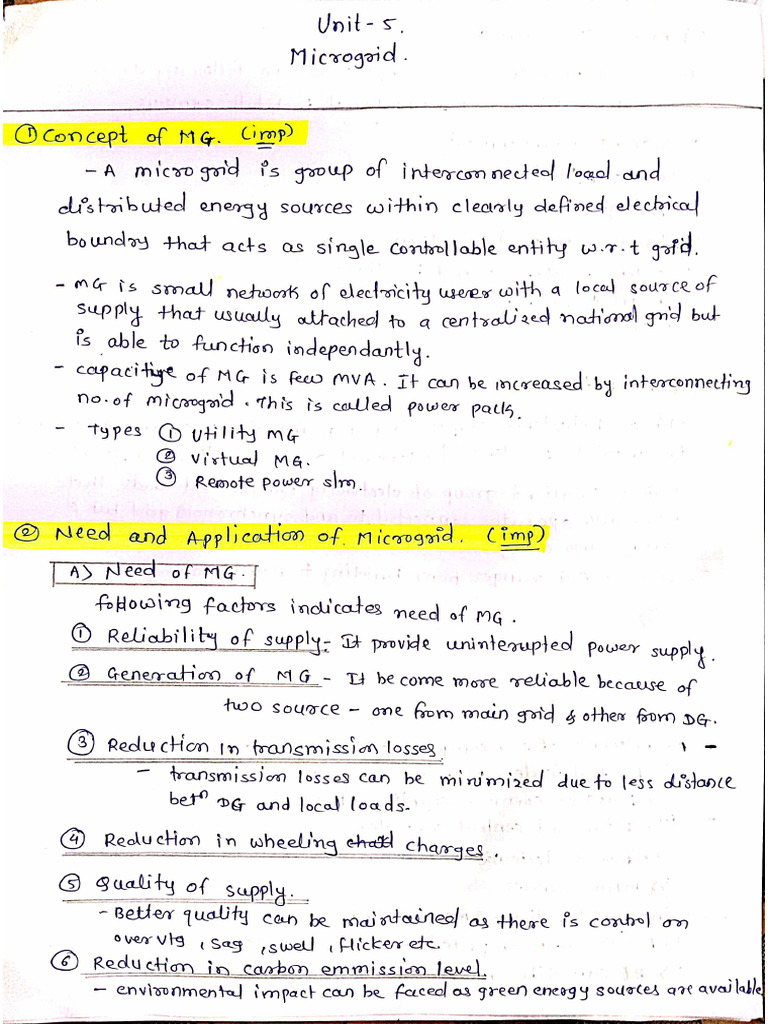 Unit-5.
Microgrid.
① Concept of MG. (imp)
- A microgrid is group of interconnected load and
distributed energy sources within clearly defined electrical
boundry that acts as single controllable entity w.r.t grid.
- MG is small network of electricity user with a local source of
supply that usually attached to a centralized national grid but
is able to function independantly.
- capacitiye of MG is few MVA. It can be increased by interconnecting
no. of microgrid. This is called power pack.
- Types ① Utility MG
② Virtual MG.
③ Remote power s/m.
② Need and Application of Microgrid. (imp)
A) Need of MG.
following factors indicates need of MG.
① Reliability of supply - It provide uninterupted power supply.
② Generation of MG - It become more reliable because of
two source - one from main grid & other from DG.
③ Reduction in transmission losses
- transmission losses can be minimized due to less distance
betn DG and local loads.
④ Reduction in wheeling charges.
⑤ Quality of supply.
- Better quality can be maintained as there is control on
over vtg, sag, swell, flicker etc.
⑥ Reduction in carbon emmission level.
- environmental impact can be faced as green energy sources are available